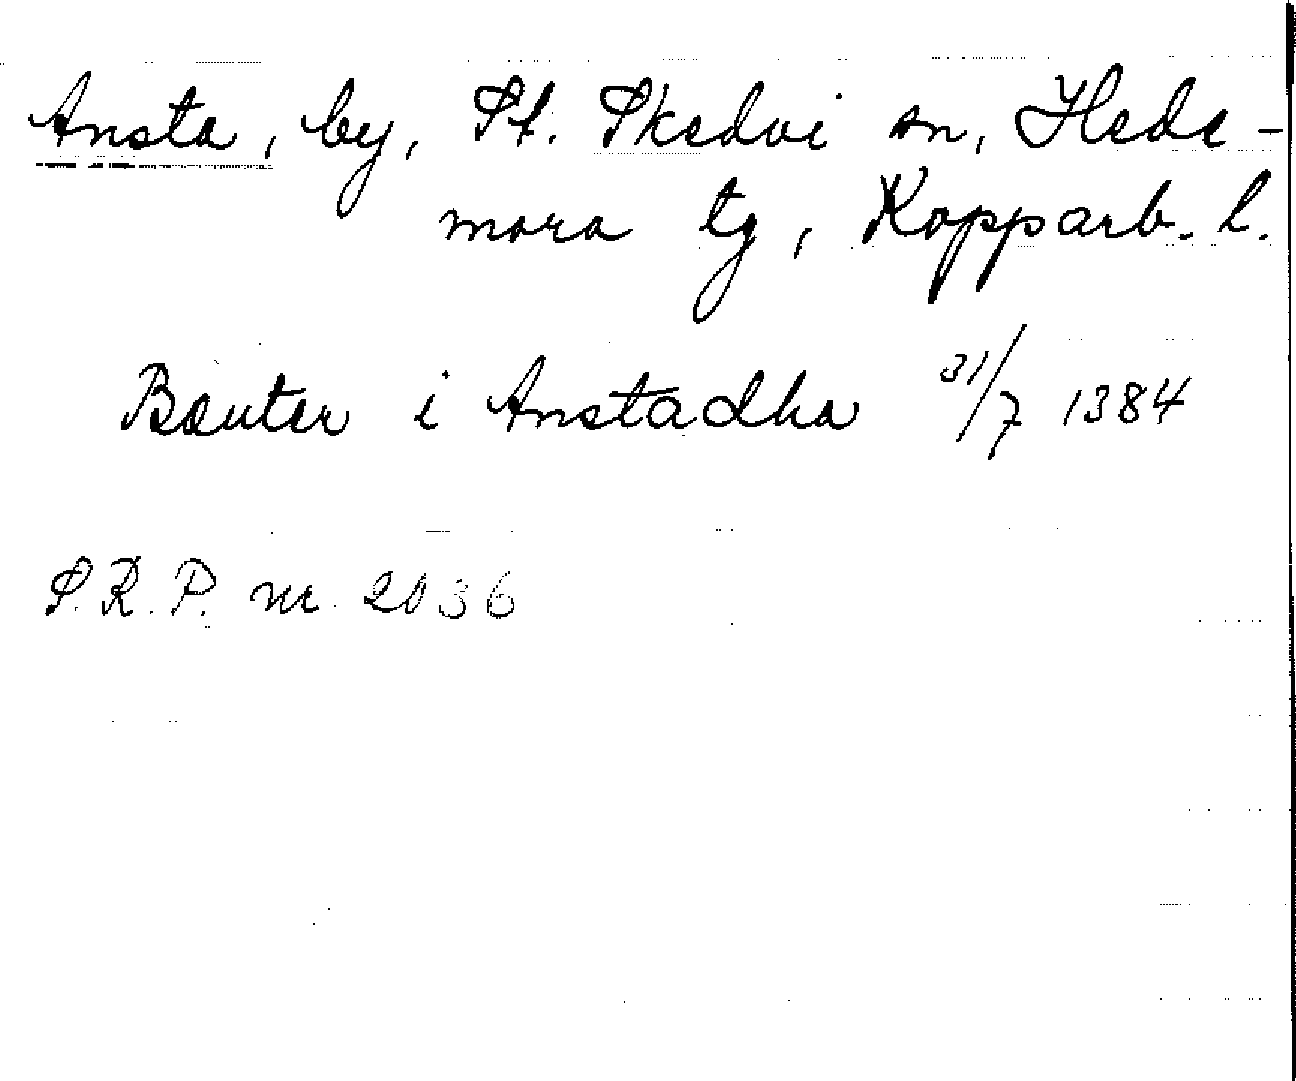 Ansta, by, St. Skedvi sn, Hede-
mora tg, Kopparb. l.
Bænter i Anstadha 31/7 1384
S.R.P. nr 2036